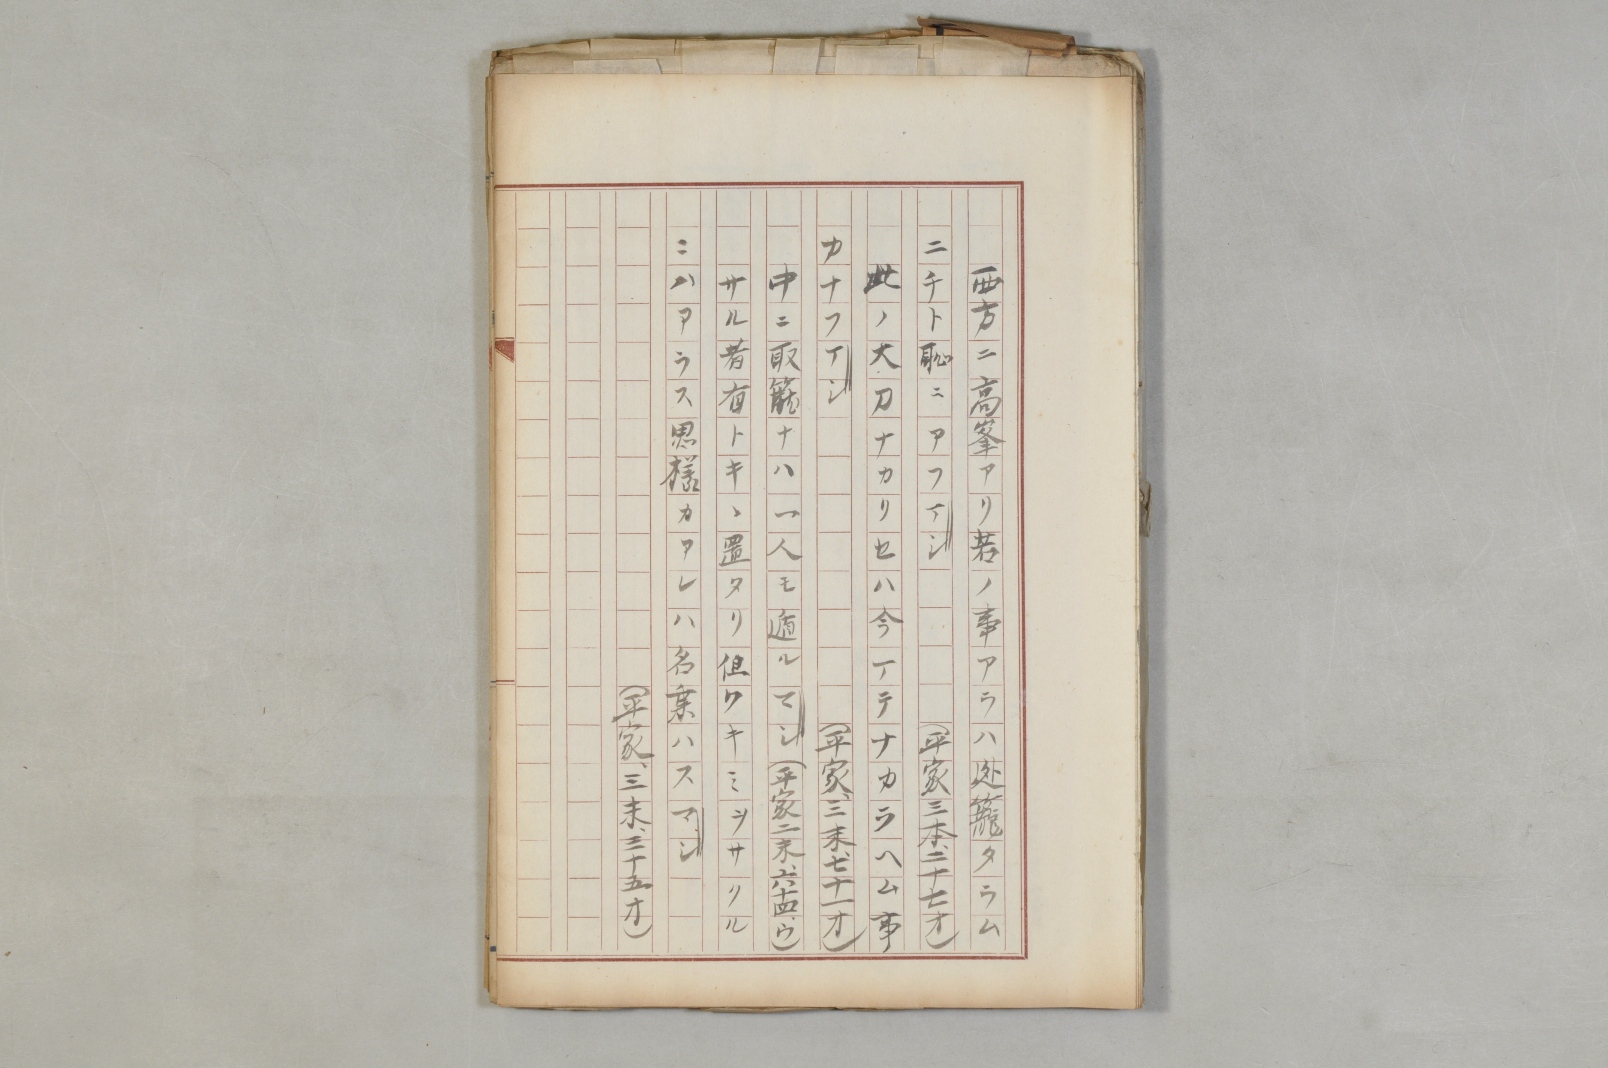 西方ニ高峯アリ若ノ事アラハ処籠タラム
ニチト恥ニアフマシ(平家三本、二十七オ)
此ノ大刀ナカリセハ今マテナカラヘム事
カナフマシ(平家、三末、七十一オ)
中ニ取籠ナハ一人モ遁ルマシ(平家二末、六十四、ウ)
サル者有トキヽ置タリ但ワキミヲサリル
ミハアラス思様カアレハ名乗ハスマシ
(平家、三末、三十五オ)